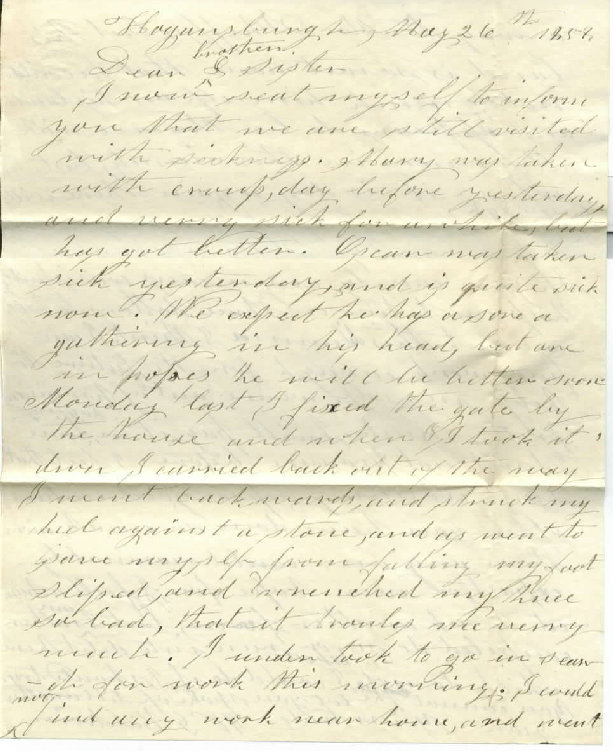 Hogansburgh, May 26th 185
Dear brother & Sister
I now seat myself to inform
you that we are still visited
with sickness. Mary was taken
with croup, day before yesterday
and verry sick for awhile, but
has got better. Oscar was taken
sick yesterday, and is quite sick
now. We expect he has a sore a
gathering in his head, but are
in hopes he will be better soon
Monday last I fixed the gate by
the house and when I took it
down I carried back out of the way
I went backwards, and struck my
hed against a stone, and as went to
save myself from falling my foot
sliped, and wrenched my knee
so bad, that it troubles me verry
much. I under took to go in sear
-ch for work this morning. I could
not find any work near home, and went